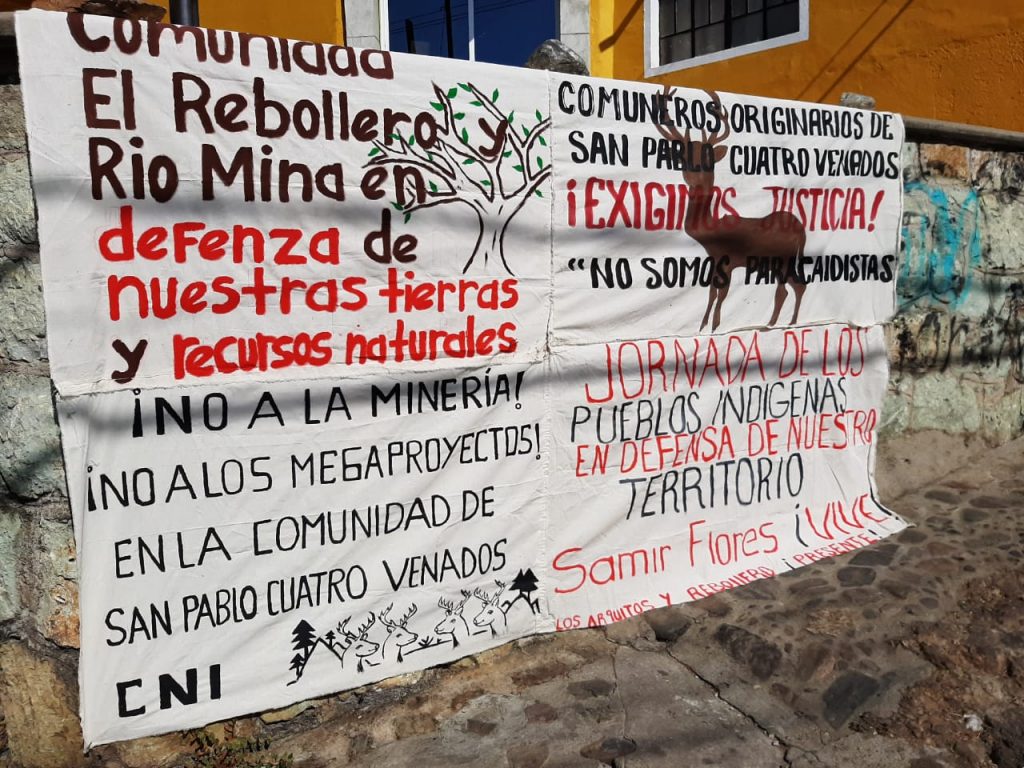 Comunidad
El Rebollero y
Rio Mina en
defenza de
nuestras tierras
y recursos naturales
COMUNEROS ORIGINARIOS DE
SAN PABLO CUATRO VENADOS
¡EXIGIMOS JUSTICIA!
"NO SOMOS PARACAIDISTAS
¡NO A LA MINERÍA!
¡NO A LOS MEGAPROYECTOS!
EN LA COMUNIDAD DE
SAN PABLO CUATRO VENADOS
CNI
JORNADA DE LOS
PUEBLOS INDIGENAS
EN DEFENSA DE NUESTRO
TERRITORIO
Samir Flores ¡VIVE
LOS ARQUITOS Y REBOLLERO ¡PRESENTE!